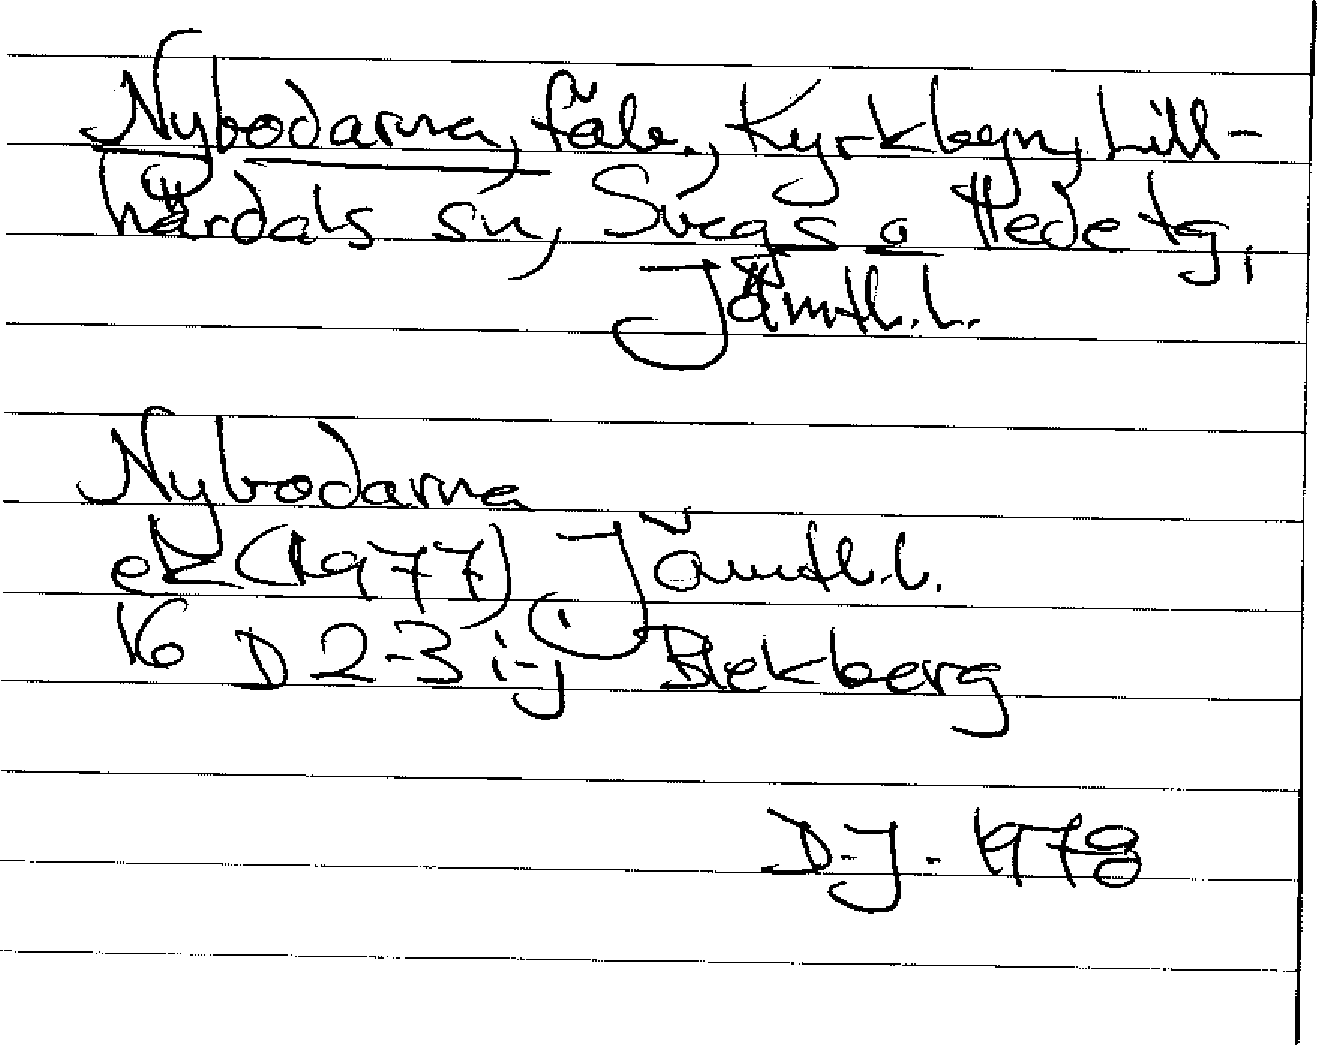 Nybodarna, fäb., Kyrkbyn, Lill-
härdals sn, Svegs o Hede tg,
Jämtl.l.
Nybodarna
ek (1977), Jämtl.l.
16 D 2-3 i-j Blekberg
D.J. 1978